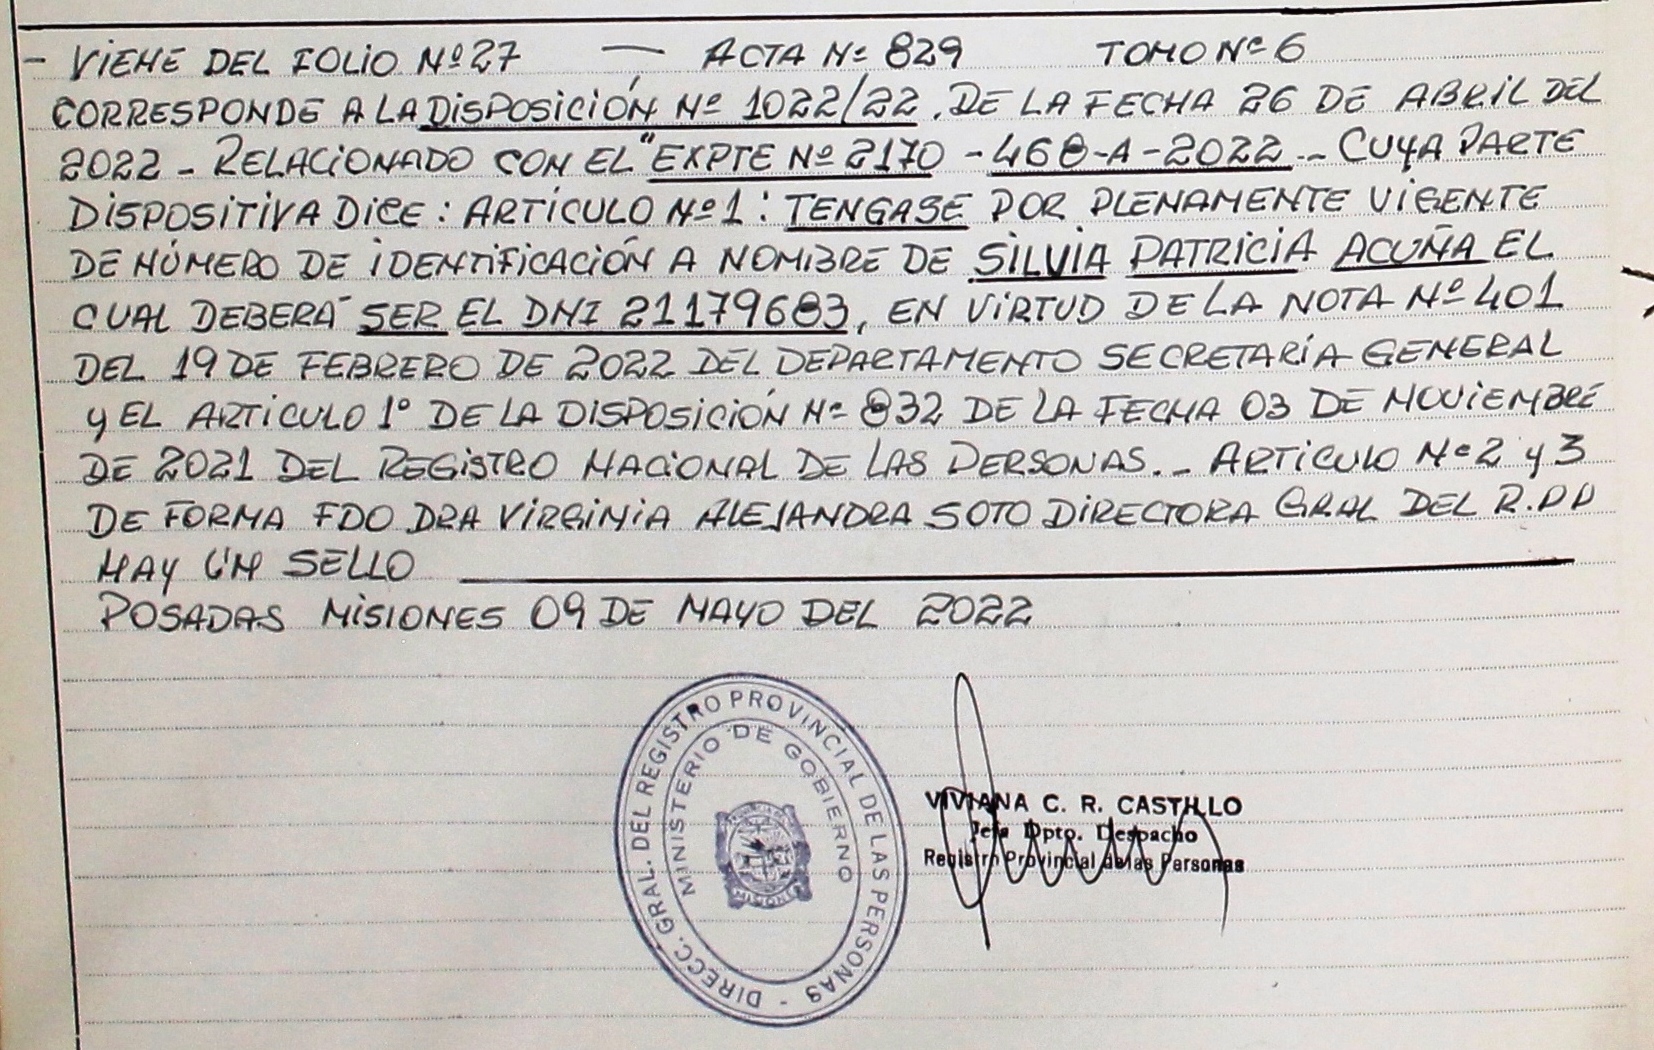 - VIENE DEL FOLIO Nº 27 — ACTA Nº 829 TOMO Nº 6
CORRESPONDE A LA DISPOSICIÓN Nº 1022/22. DE LA FECHA 26 DE ABRIL DEL
2022 - RELACIONADO CON EL "EXPTE Nº 2170 - 468-A-2022 - CUYA PARTE
DISPOSITIVA DICE: ARTÍCULO Nº 1: TENGASE POR PLENAMENTE VIGENTE
DE NÚMERO DE IDENTIFICACIÓN A NOMBRE DE SILVIA PATRICIA ACUÑA EL
CUAL DEBERÁ SER EL DNI 21179683, EN VIRTUD DE LA NOTA Nº 401
DEL 19 DE FEBRERO DE 2022 DEL DEPARTAMENTO SECRETARÍA GENERAL
Y EL ARTICULO 1º DE LA DISPOSICIÓN Nº 832 DE LA FECHA 03 DE NOVIEMBRE
DE 2021 DEL REGISTRO NACIONAL DE LAS PERSONAS. - ARTICULO Nº 2 Y 3
DE FORMA FDO DRA VIRGINIA ALEJANDRA SOTO DIRECTORA GRAL DEL R.PP
HAY UN SELLO
POSADAS MISIONES 09 DE MAYO DEL 2022
DIRECC. GRAL. DEL REGISTRO PROVINCIAL DE LAS PERSONAS -
MINISTERIO DE GOBIERNO
MISIONES
VIVIANA C. R. CASTILLO
Jefa Dpto. Despacho
Registro Provincial de las Personas